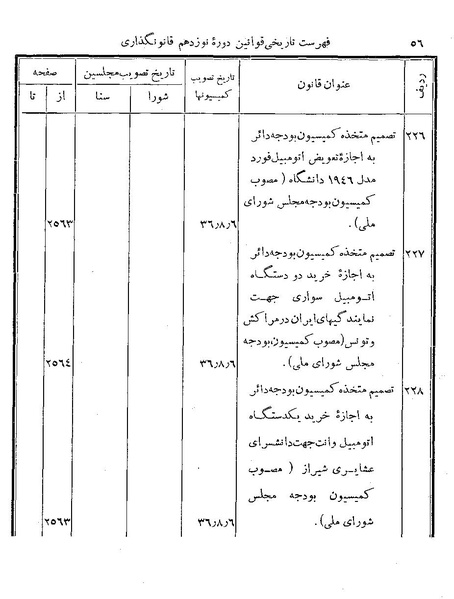 ٥٦ فهرست تاریخی قوانین دورهٔ نوزدهم قانونگذاری
ردیف عنوان قانون تاریخ تصویب کمیسیونها تاریخ تصویب مجلسین صفحه
شورا سنا از تا
٢٢٦ تصمیم متخذه کمیسیون بودجه دائر
به اجازهٔ تعویض اتومبیل فورد
مدل ١٩٤٦ دانشگاه (مصوب
کمیسیون بودجه مجلس شورای
ملی). ٣٦٫٨٫٦ ٢٥٦٣
٢٢٧ تصمیم متخذه کمیسیون بودجه دائر
به اجازهٔ خرید دو دستگاه
اتومبیل سواری جهت
نمایندگیهای ایران در مراکش
و تونس (مصوب کمیسیون بودجه
مجلس شورای ملی). ٣٦٫٨٫٦ ٢٥٦٤
٢٢٨ تصمیم متخذه کمیسیون بودجه دائر
به اجازهٔ خرید یکدستگاه
اتومبیل وانت جهت دانشسرای
عشایری شیراز (مصوب
کمیسیون بودجه مجلس
شورای ملی). ٣٦٫٨٫٦ ٢٥٦٣